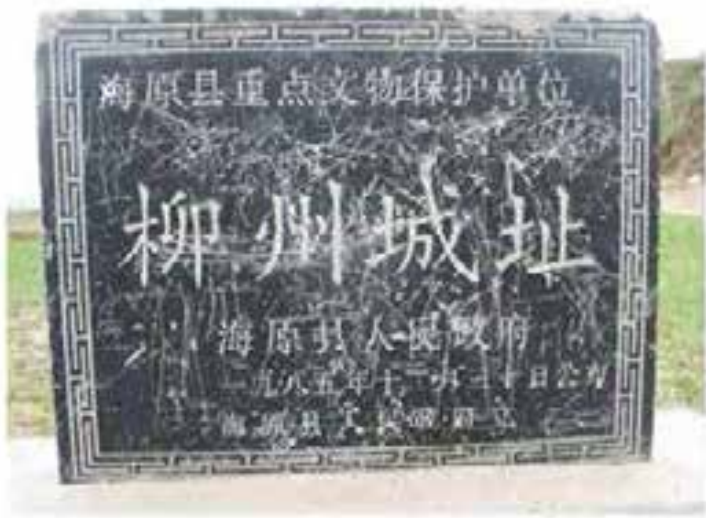 海原县重点文物保护单位
柳州城址
海原县人民政府
一九八五年十二月二十日公布
海原县人民政府立